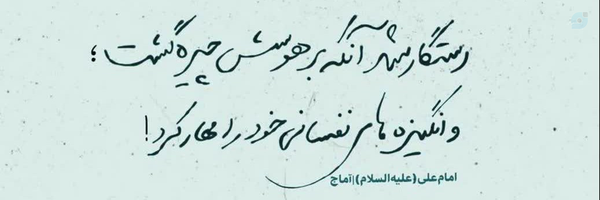 رستگار شد آنکه بر هوسش چیره گشت؛
و انگیزه های نفسانی خود را مهار کرد!
امام علی (علیه السلام) | آماج